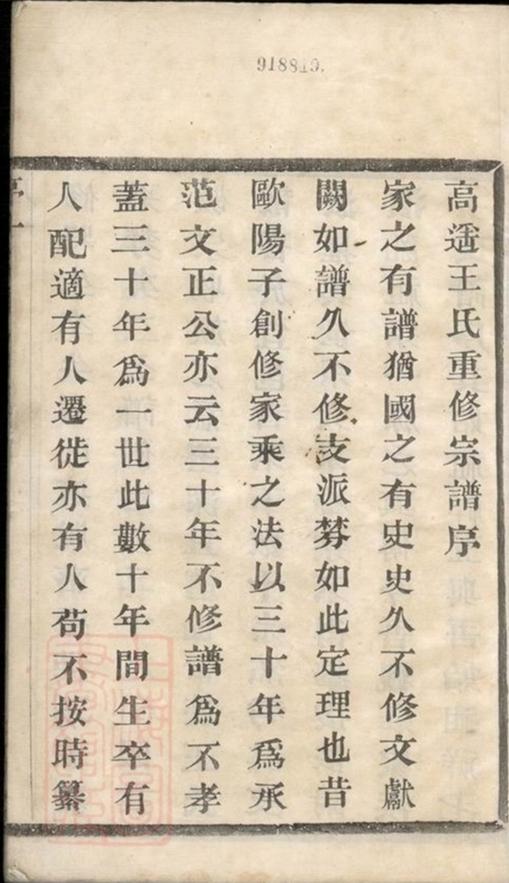 918819.
高遥王氏重修宗譜序
家之有譜猶國之有史史久不修文獻
闕如譜久不修支派棼如此定理也昔
歐陽子創修家乘之法以三十年爲承
范文正公亦云三十年不修譜爲不孝
蓋三十年爲一世此數十年間生卒有
人配適有人遷徙亦有人苟不按時纂
序一